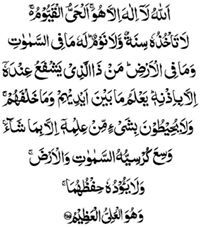 اَللّٰهُ لَاۤ اِلٰهَ اِلَّا هُوَۚ اَلْحَیُّ الْقَیُّوْمُ۬ۚ
لَا تَاْخُذُهٗ سِنَةٌ وَّلَا نَوْمٌؕ لَهٗ مَا فِی السَّمٰوٰتِ
وَمَا فِی الْاَرْضِؕ مَنْ ذَا الَّذِیْ یَشْفَعُ عِنْدَهٗۤ
اِلَّا بِاِذْنِهٖؕ یَعْلَمُ مَا بَیْنَ اَیْدِیْهِمْ وَمَا خَلْفَهُمْۚ
وَلَا یُحِیْطُوْنَ بِشَیْءٍ مِّنْ عِلْمِهٖۤ اِلَّا بِمَا شَآءَۚ
وَسِعَ كُرْسِیُّهُ السَّمٰوٰتِ وَالْاَرْضَۚ
وَلَا یَـُٔوْدُهٗ حِفْظُهُمَاۚ
وَهُوَ الْعَلِیُّ الْعَظِیْمُ